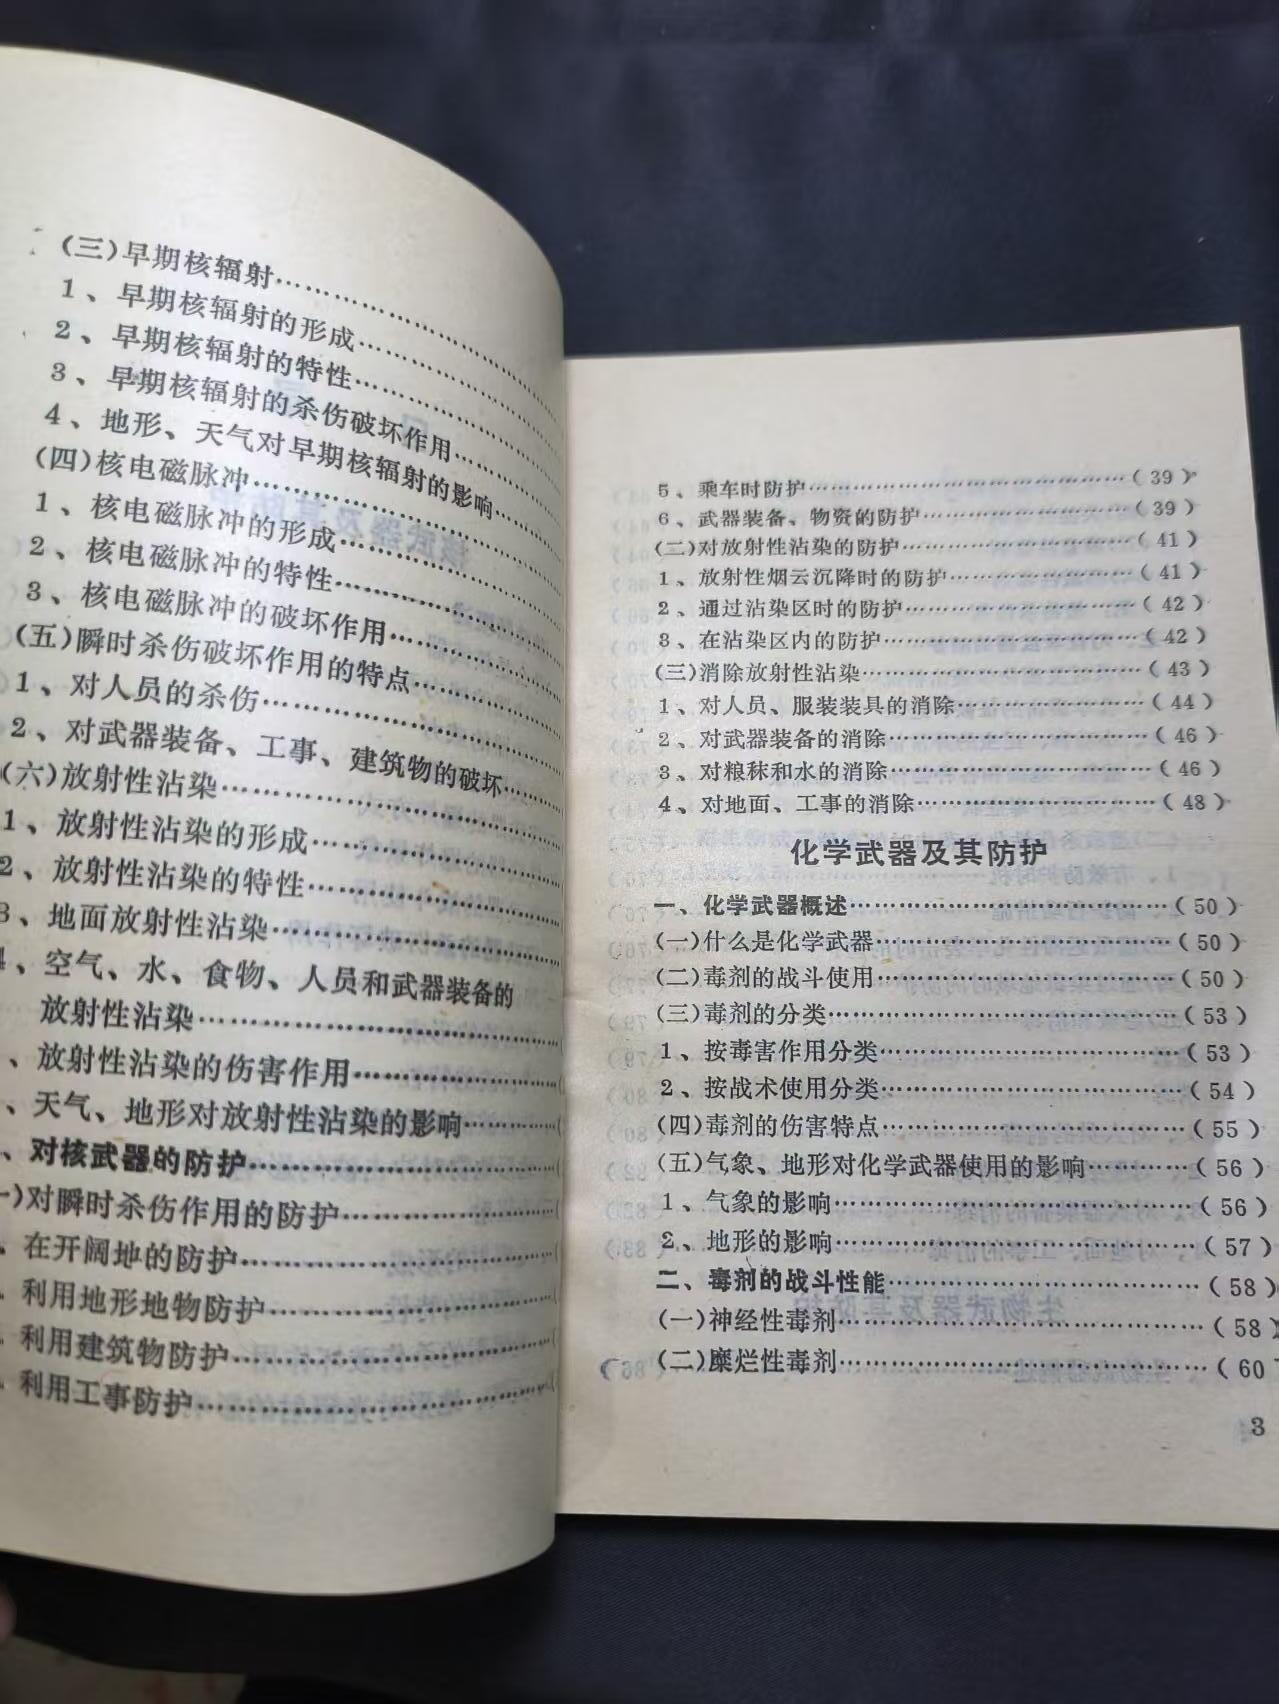 (三)早期核辐射……………………
1、早期核辐射的形成……………………
2、早期核辐射的特性……………………
3、早期核辐射的杀伤破坏作用……………
4、地形、天气对早期核辐射的影响………
(四)核电磁脉冲……………………
1、核电磁脉冲的形成……………………
2、核电磁脉冲的特性……………………
3、核电磁脉冲的破坏作用…………………
(五)瞬时杀伤破坏作用的特点………………
1、对人员的杀伤……………………
2、对武器装备、工事、建筑物的破坏………
(六)放射性沾染……………………
1、放射性沾染的形成……………………
2、放射性沾染的特性……………………
3、地面放射性沾染……………………
、空气、水、食物、人员和武器装备的
放射性沾染……………………
、放射性沾染的伤害作用………………
、天气、地形对放射性沾染的影响…………
、对核武器的防护……………………
)对瞬时杀伤作用的防护………………
在开阔地的防护……………………
利用地形地物防护……………………
利用建筑物防护……………………
利用工事防护……………………
5、乘车时防护……………………(39)
6、武器装备、物资的防护………………(39)
(二)对放射性沾染的防护………………(41)
1、放射性烟云沉降时的防护……………(41)
2、通过沾染区时的防护………………(42)
3、在沾染区内的防护…………………(42)
(三)消除放射性沾染……………………(43)
1、对人员、服装装具的消除……………(44)
2、对武器装备的消除…………………(46)
3、对粮秣和水的消除…………………(46)
4、对地面、工事的消除………………(48)
化学武器及其防护
一、化学武器概述……………………(50)
(一)什么是化学武器…………………(50)
(二)毒剂的战斗使用…………………(50)
(三)毒剂的分类……………………(53)
1、按毒害作用分类…………………(53)
2、按战术使用分类…………………(54)
(四)毒剂的伤害特点…………………(55)
(五)气象、地形对化学武器使用的影响………(56)
1、气象的影响……………………(56)
2、地形的影响……………………(57)
二、毒剂的战斗性能…………………(58)
(一)神经性毒剂……………………(58)
(二)糜烂性毒剂……………………(60
3